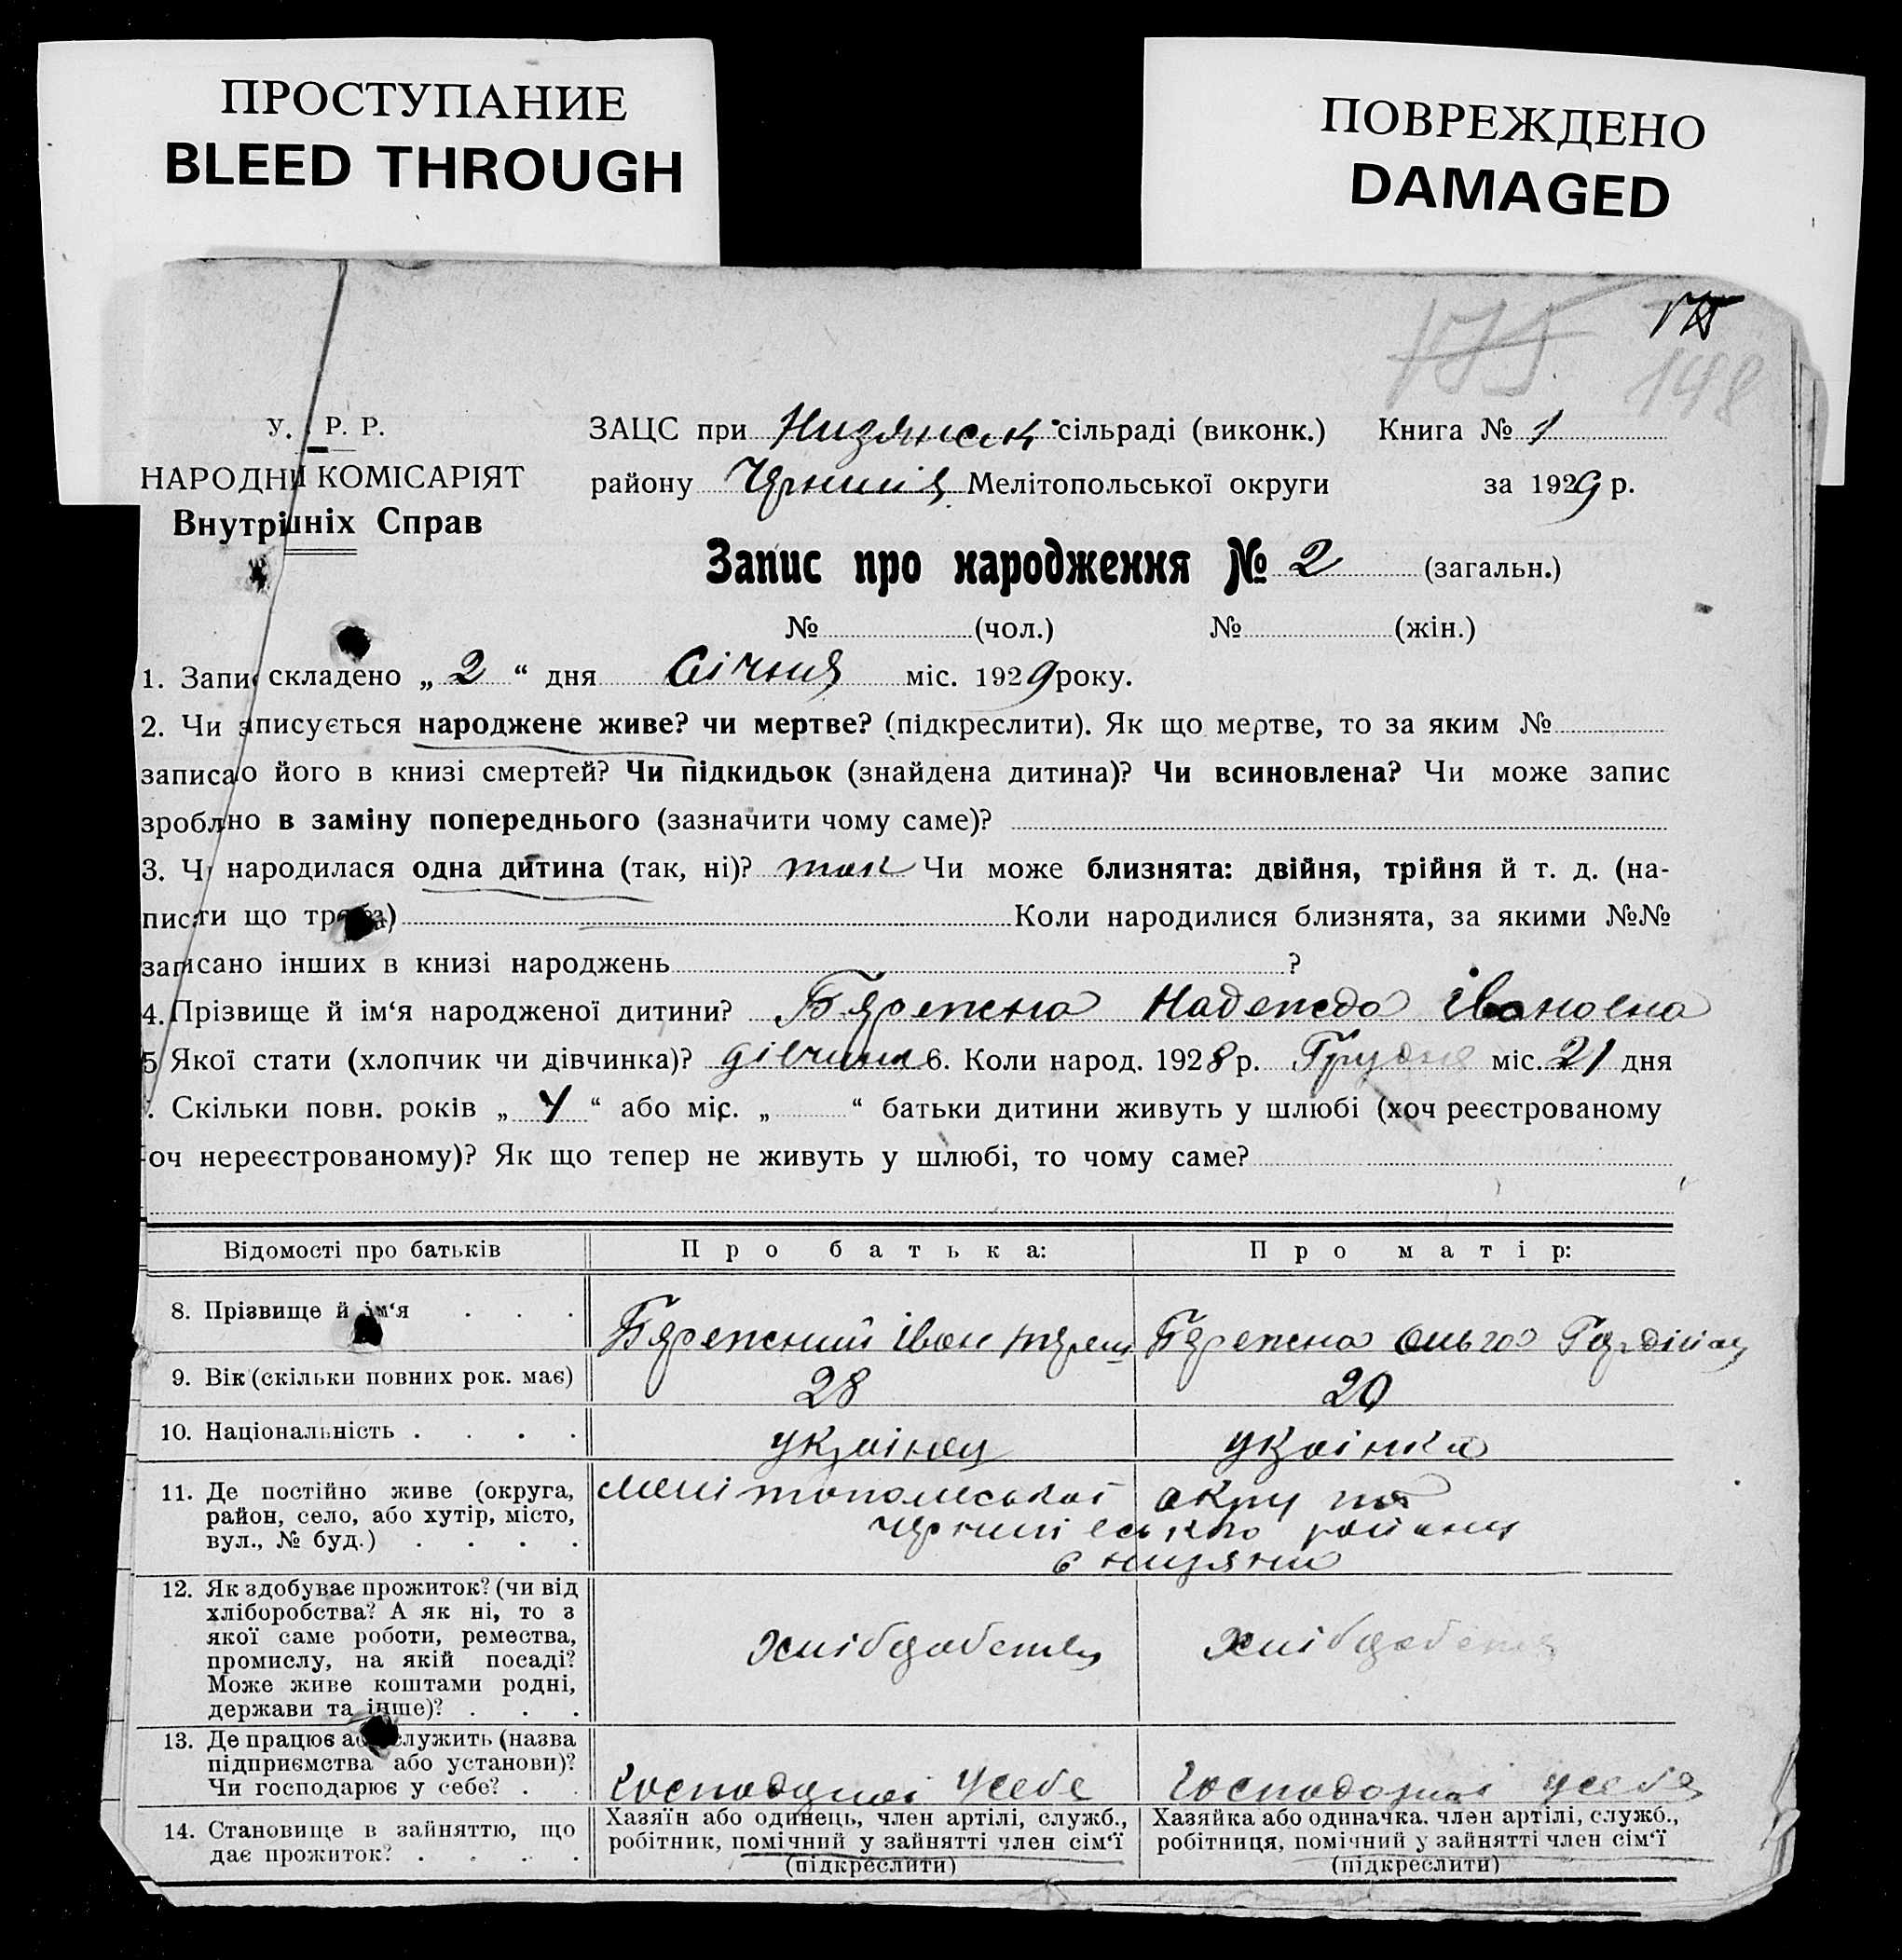 ПРОСТУПАНИЕ
BLEED THROUGH
ПОВРЕЖДЕНО
DAMAGED
175
148
У. . Р. Р.
НАРОДНИ КОМІСАРІЯТ
Внутрішніх Справ
ЗАЦС при Низянск сільраді (виконк.) Книга № 1
району Мелітопольської округи за 1929 р.
Запис про народження № 2 (загальн.)
№ (чол.) № (жін.)
1. Запис складено „ 2 “ дня Січня міс. 1929 року.
2. Чи записується народжене живе? чи мертве? (підкреслити). Як що мертве, то за яким №
записано його в книзі смертей? Чи підкидьок (знайдена дитина)? Чи всиновлена? Чи може запис
зроблно в заміну попереднього (зазначити чому саме)?
3. Чи народилася одна дитина (так, ні)? так Чи може близнята: двійня, трійня й т. д. (на-
писати що треба) Коли народилися близнята, за якими №№
записано інших в книзі народжень ?
4. Прізвище й ім‘я народженої дитини? Бережна Надежда Івановна
5 Якої стати (хлопчик чи дівчинка)? дівчина 6. Коли народ. 1928 р. Грудня міс. 21 дня
. Скільки повн. років „ 4 “ або міс. „ “ батьки дитини живуть у шлюбі (хоч реєстрованому
оч нереєстрованому)? Як що тепер не живуть у шлюбі, то чому саме?
Відомості про батьків Про батька: Про матір:
8. Прізвище й ім‘я . . . Бережний Іван Бережна Ольга
9. Вік (скільки повних рок. має) 28 20
10. Національність . . . . українец українка
11. Де постійно живе (округа, Мелітопольської округи
район, село, або хутір, місто, району
вул., № буд.) . . . . с низяни
12. Як здобуває прожиток? (чи від
хліборобства? А як ні, то з
якої саме роботи, ремества, хліборобства хліборобства
промислу, на якій посаді?
Може живе коштами родні,
держави та інше)? . . .
13. Де працює або служить (назва
підприємства або установи)?
Чи господарює у себе? . . Господарює у себе Господарює у себе
14. Становище в зайняттю, що
дає прожиток? . . . .
Хазяїн або одинець, член артілі, служб.,
робітник, помічний у зайнятті член сім‘ї
(підкреслити)
Хазяйка або одиначка. член артілі, служб.,
робітниця, помічний у зайнятті член сім‘ї
(підкреслити)